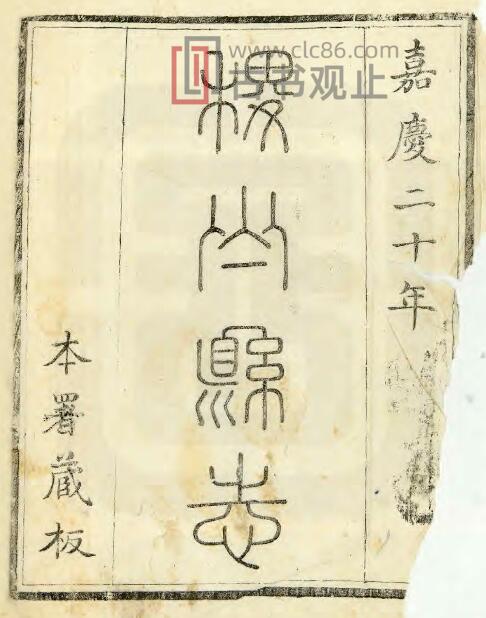 嘉慶二十年
稷山縣志
本署藏板
www.clc86.com
古书观止